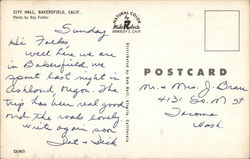 CITY HALL, BAKERSFIELD, CALIF.
Photo by Ray Fulton
NATURAL COLOR
Mike Roberts
BERKELEY 2, CALIF.
Sunday
Hi Folks
Well here we are
in Bakersfield, we
spent last night in
Ashland, Oregon. The
trip has been real good
and the roads lovely
Write again soon
Dot + Dick
POSTCARD
Mr. & Mrs. J. Brau
4131 So. M St
Tacoma
Wash.